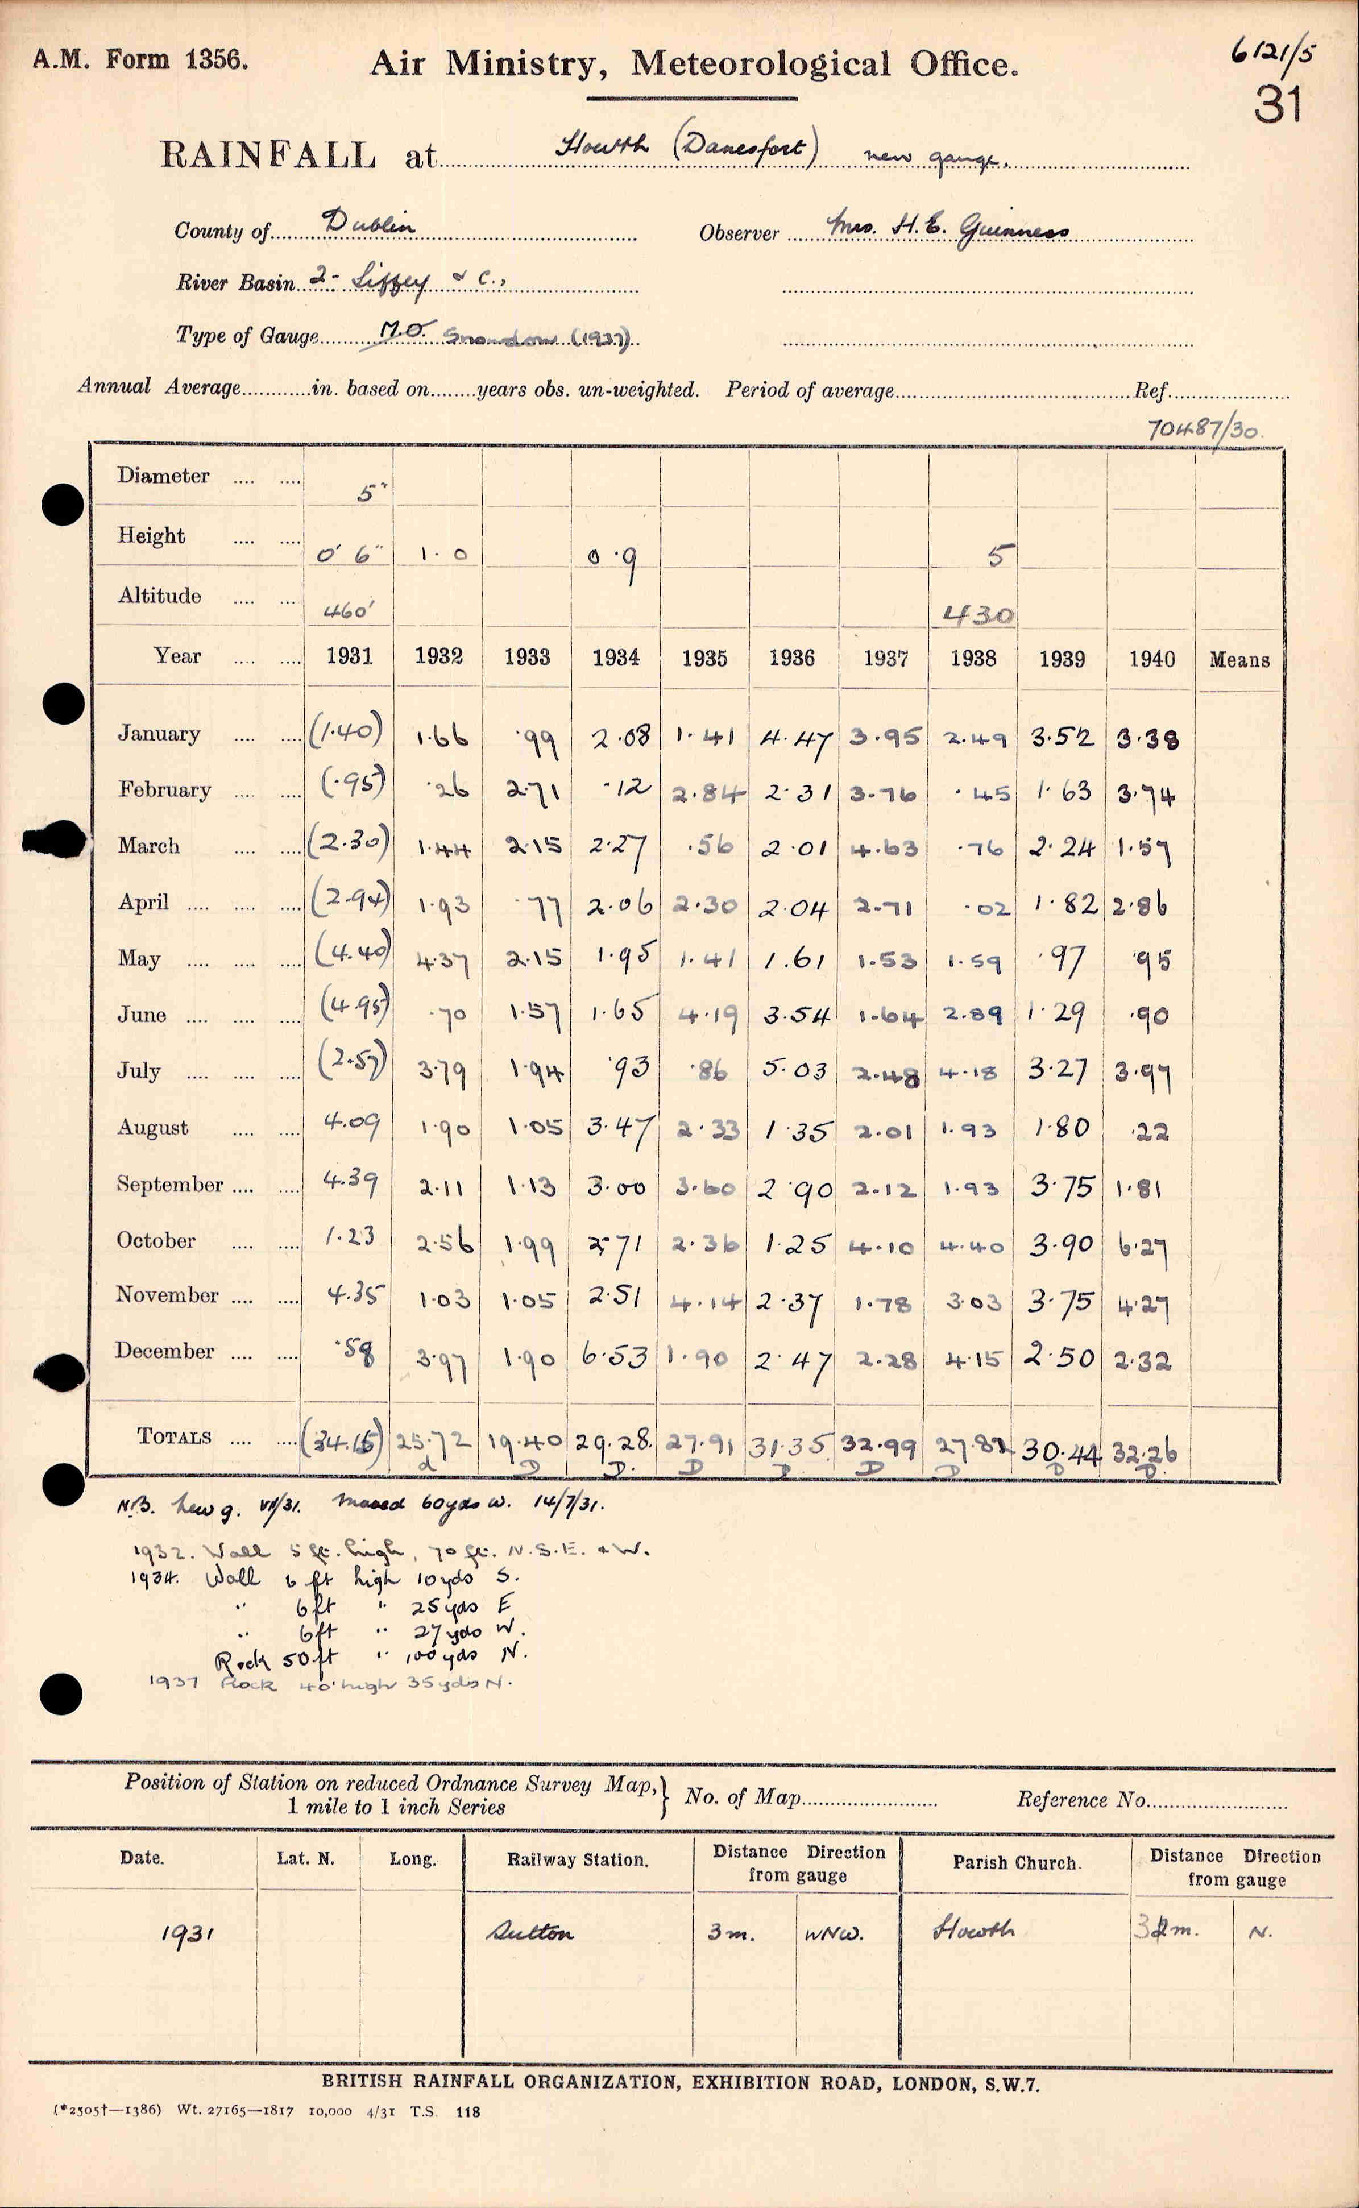 A.M. Form 1356.
Air Ministry, Meteorological Office.
6121/5
31
RAINFALL at Howth (Danesfort) new gauge.
County of Dublin Observer Mrs. H.E. Guinness
River Basin 2- Liffey & c.,
Type of Gauge M.O. Snowdon (1937)
Annual Average............in. based on........years obs. un-weighted. Period of average........Ref........
70487/30.
Diameter .... .... 5"
Height .... .... 0' 6" 1.0 0.9 5
Altitude .... .... 460' 430
Year .... .... 1931 1932 1933 1934 1935 1936 1937 1938 1939 1940 Means
January .... .... (1.40) 1.66 .99 2.08 1.41 4.47 3.95 2.49 3.52 3.38
February .... .... (.95) .26 2.71 .12 2.84 2.31 3.76 .45 1.63 3.74
March .... .... (2.30) 1.44 2.15 2.27 .56 2.01 4.63 .76 2.24 1.57
April .... .... .... (2.94) 1.93 .77 2.06 2.30 2.04 2.71 .02 1.82 2.86
May .... .... .... (4.40) 4.37 2.15 1.95 1.41 1.61 1.53 1.59 .97 .95
June .... .... .... (4.95) .70 1.57 1.65 4.19 3.54 1.64 2.89 1.29 .90
July .... .... .... (2.57) 3.79 1.94 .93 .86 5.03 2.48 4.18 3.27 3.97
August .... .... 4.09 1.90 1.05 3.47 2.33 1.35 2.01 1.93 1.80 .22
September .... .... 4.39 2.11 1.13 3.00 3.60 2.90 2.12 1.93 3.75 1.81
October .... .... 1.23 2.56 1.99 2.71 2.36 1.25 4.10 4.40 3.90 6.27
November .... .... 4.35 1.03 1.05 2.51 4.14 2.37 1.78 3.03 3.75 4.27
December .... .... .58 3.97 1.90 6.53 1.90 2.47 2.28 4.15 2.50 2.32
TOTALS .... .... (34.15) 25.72 19.40 29.28. 27.91 31.35 32.99 27.82 30.44 32.26
d D D. D D. D D D D.
N.B. new g. VII/31. moved 60yds W. 14/7/31.
1932. Wall 5 ft. high, 70 ft. N.S.E. & W.
1934. Wall 6 ft high 10yds S.
" 6ft " 25yds E
" 6ft " 27yds W.
Rock 50ft " 100yds N.
1937 Rock 40' high 35yds N.
Position of Station on reduced Ordnance Survey Map,} No. of Map........ Reference No........
1 mile to 1 inch Series
Date. Lat. N. Long. Railway Station. Distance Direction from gauge Parish Church. Distance Direction from gauge
1931 Sutton 3m. WNW. Howth N.
BRITISH RAINFALL ORGANIZATION, EXHIBITION ROAD, LONDON, S.W.7.
(*2505†—1386) Wt. 27165—1817 10,000 4/31 T.S. 118